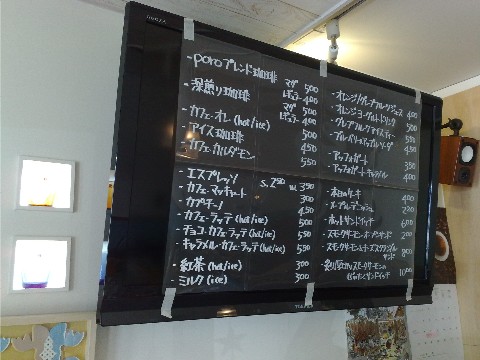 ・poroブレンド珈琲 マグ 500
レギュラー 400
・深煎り珈琲 マグ 500
レギュラー 400
・カフェ・オレ (hot/ice) 500
・アイス珈琲 500
・カフェ・カルダモン 550
・エスプレッソ S. 250 W. 350
・カフェ・マッキャート 300
・カプチーノ 450
・カフェ・ラッテ (hot/ice) 500
・チョコ・カフェ・ラッテ (hot/ice) 550
・キャラメル・カフェ・ラッテ (hot/ice) 550
・紅茶 (hot/ice) 300
・ミルク (ice) 300
・オレンジ/グレープフルーツジュース 400
・オレンジヨーグルトドリンク 500
・グレープフルーツアイスティー 550
・ブルーベリー 450
・アッフォガート 350
・アッフォガート キャラメル 400
・本日のケーキ 400
・メープルデニッシュ 220
・ホットサンドイッチ 600
・スモークサーモン サンド
・スモークサーモンとチーズスクランブル
サンド 800
スモークサーモンの
サンドイッチ